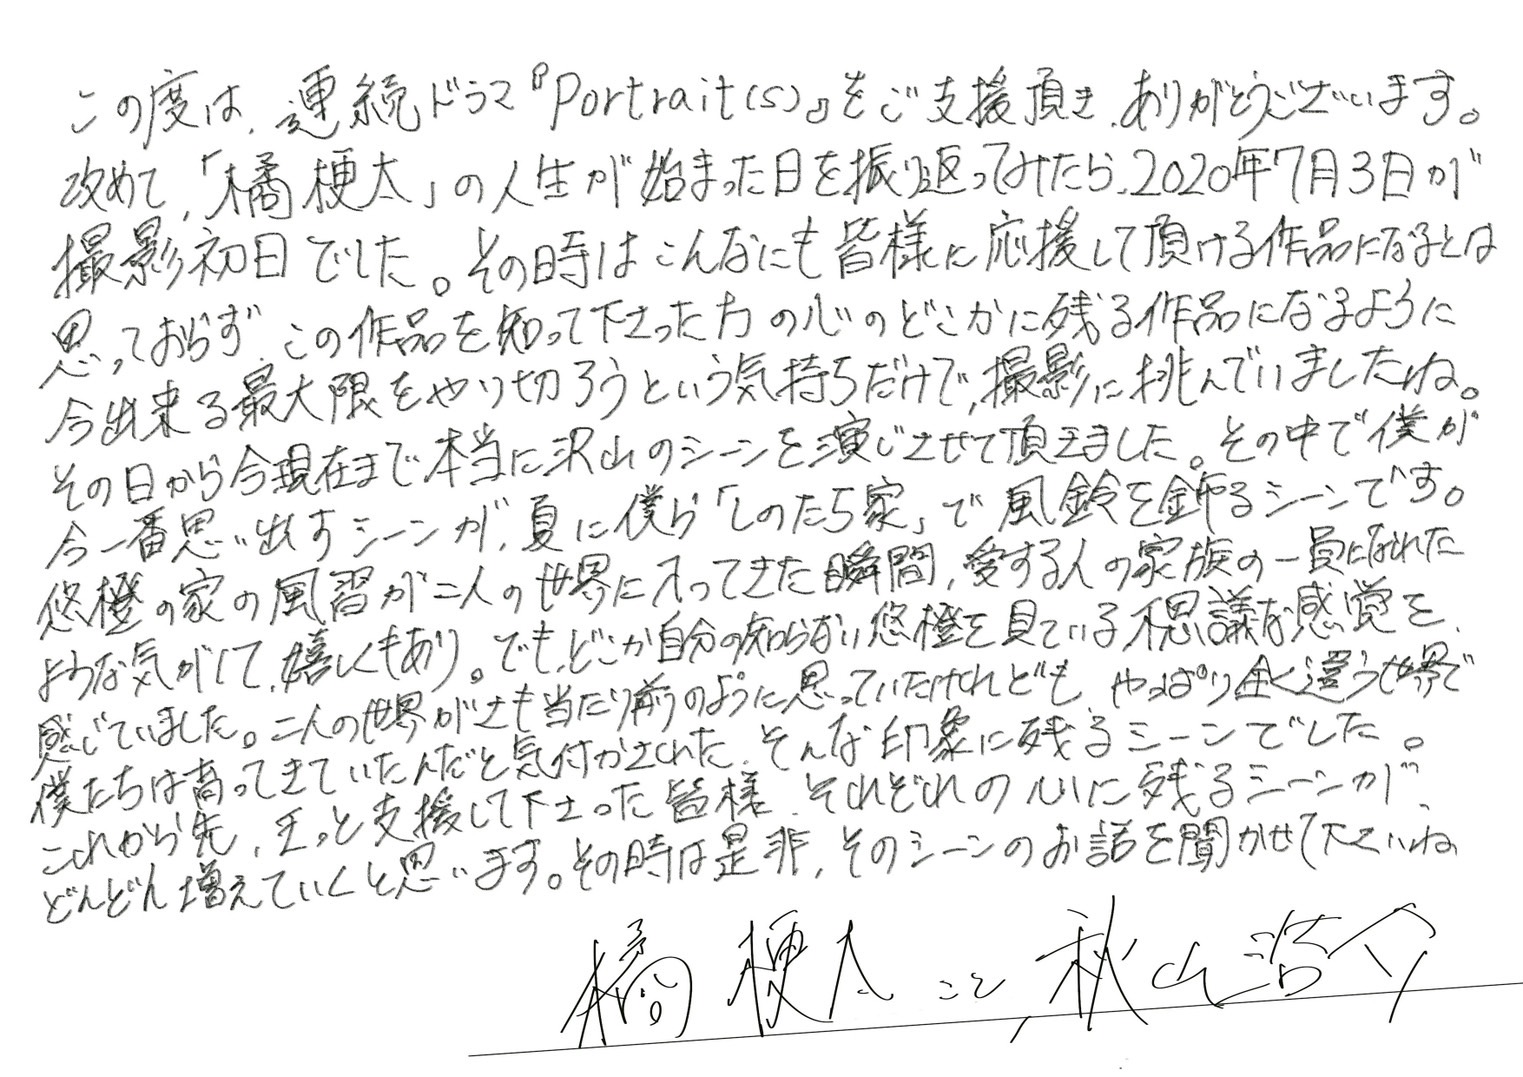 この度は、連続ドラマ『Portrait(s)』をご支援頂き、ありがとうございます。
改めて、「橘梗太」の人生が始まった日を振り返ってみたら、2020年7月3日が
撮影初日でした。その時はこんなにも皆様に応援して頂ける作品になるとは
思っておらず、この作品を知って下さった方の心のどこかに残る作品になるように
今出来る最大限をやり切ろうという気持ちだけで、撮影に挑んでいましたね。
その日から今現在まで本当に沢山のシーンを演じさせて頂きました。その中で僕が
今一番思い出すシーンが、夏に僕ら「しのたち家」で風鈴を飾るシーンです。
悠橙の家の風習が二人の世界に入ってきた瞬間、愛する人の家族の一員になれた
ような気がして、嬉しくもあり。でも、どこか自分の知らない悠橙を見ている不思議な感覚を、
感じていました。二人の世界がさも当たり前のように思っていたけれども、やっぱり全く違う世界で
僕たちは育ってきていたんだと気付かされた、そんな印象に残るシーンでした。
これから先、きっと支援して下さった皆様、それぞれの心に残るシーンが、
どんどん増えていくと思います。その時は是非、そのシーンのお話を聞かせて下さいね
橘梗太こと、秋山浩介